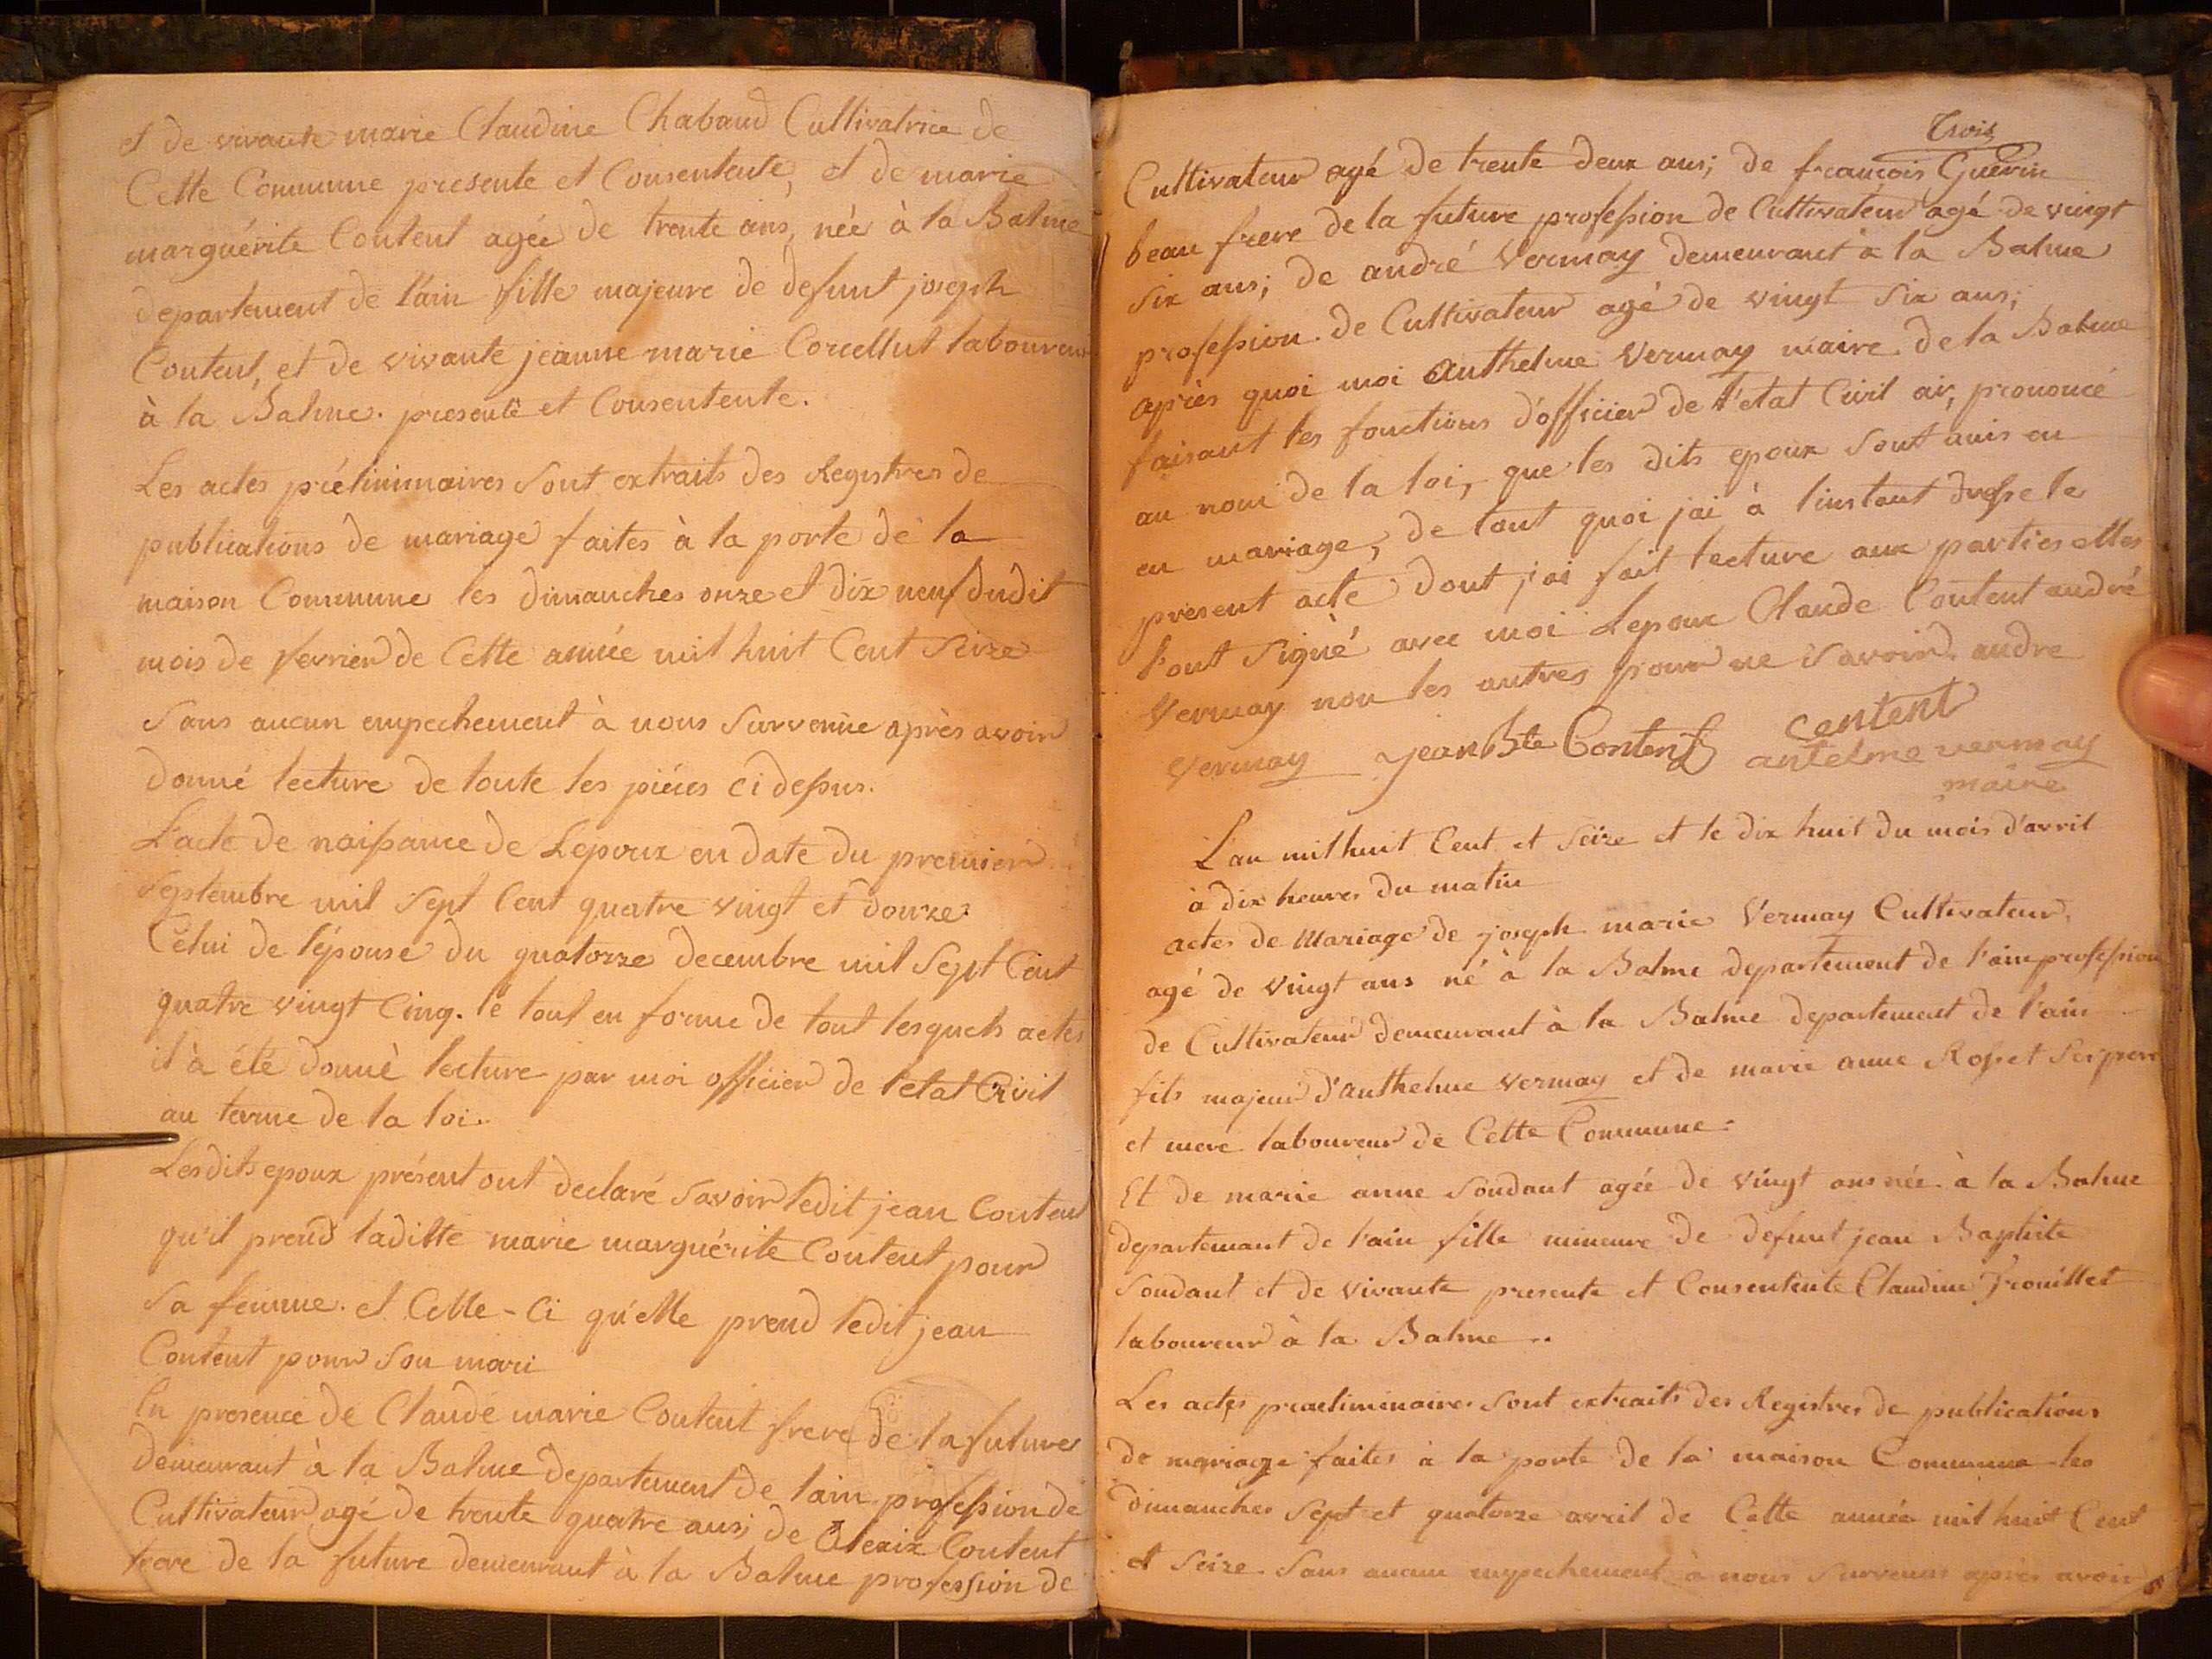 et de vivante marie Claudine Chabaud Cultivatrice de
Cette Commune presente et Consentente, et de marie
marguérite Content agée de trente ans, née à la Balme
departement de l'ain fille majeure de defunt joseph
Content, et de vivante jeanne marie Corcellut laboureur
à la Balme. presente et Consentente.
Les actes préliminaires Sont extraits des Registres de
publications de mariage faites à la porte de la
maison Commune les dimanches onze et dix neuf dudit
mois de fevrier de Cette année mil huit Cent Seize
Sans aucun empechement à nous Survenüe après avoir
donné lecture de toute les piéces ci dessus.
L'acte de naissance de Lepoux en date du premier
Septembre mil Sept Cent quatre vingt et douze.
Celui de l'épouse du quatorze decembre mil Sept Cent
quatre vingt Cinq. le tout en forme de tout lesquels actes
il à été donnè lecture par moi officier de l'etat Civil
au terme de la loi.
Lesdits epoux présent ont declaré Savoir ledit jean Content
qu'il prend laditte marie marguérite Content pour
Sa femme. et Celle-Ci qu'elle prend ledit jean
Content pour Son mari
En presence de Claude marie Content frere de la future
demeurant à la Balme departement de l'ain profession de
Cultivateur agé de trente quatre ans; de Alexix Content
frere de la future demeurant à la Balme profession de
Trois
Cultivateur agé de trente deux ans; de françois Guerin
beau frere de la future profession de Cultivateur agé de vingt
Six ans; de andré Vermay demeurant à la Balme
profession de Cultivateur agé de vingt Six ans;
après quoi moi Anthelme Vermay maire de la Balme
faisant les fonctions d'officier de l'etat Civil ai, prononcé
au nom de la loi, que les dits epoux Sont unis en
en mariage, de tout quoi jai à linstant dresse le
present acte dont j'ai fait lecture aux parties elles
l'ont Signè avec moi Lepoux Claude Content andré
Vermay non les autres pour ne Savoir. andre
Vermay jean Bte Content Content
antelme vermay
maire
L'an mil huit Cent et Seize et le dix huit du mois d'avril
à dix heures du matin
actes de Mariage de joseph marie Vermay Cultivateur,
agé de vingt ans né à la Balme departement de l'ain profession
de Cultivateur demeurant à la Balme departement de l'ain
fils majeur d'anthelme Vermay et de marie anne Rosset Ses pere
et mere laboureur de Cette Commune.
Et de marie anne Soudant agée de vingt ans née à la Balme
departemant de l'ain fille mineure de defunt jean Baptiste
Soudant et de vivante presente et Consentente Claudine Trouillet
laboureur à la Balme ..
Les actes praeliminaires Sont extraits des Registres de publications
de mariage faites à la porte de la maison Commune les
dimanches Sept et quatorze avril de Cette année mil huit Cent
et Seize. Sans aucun empechement à nous Survenus après avoir